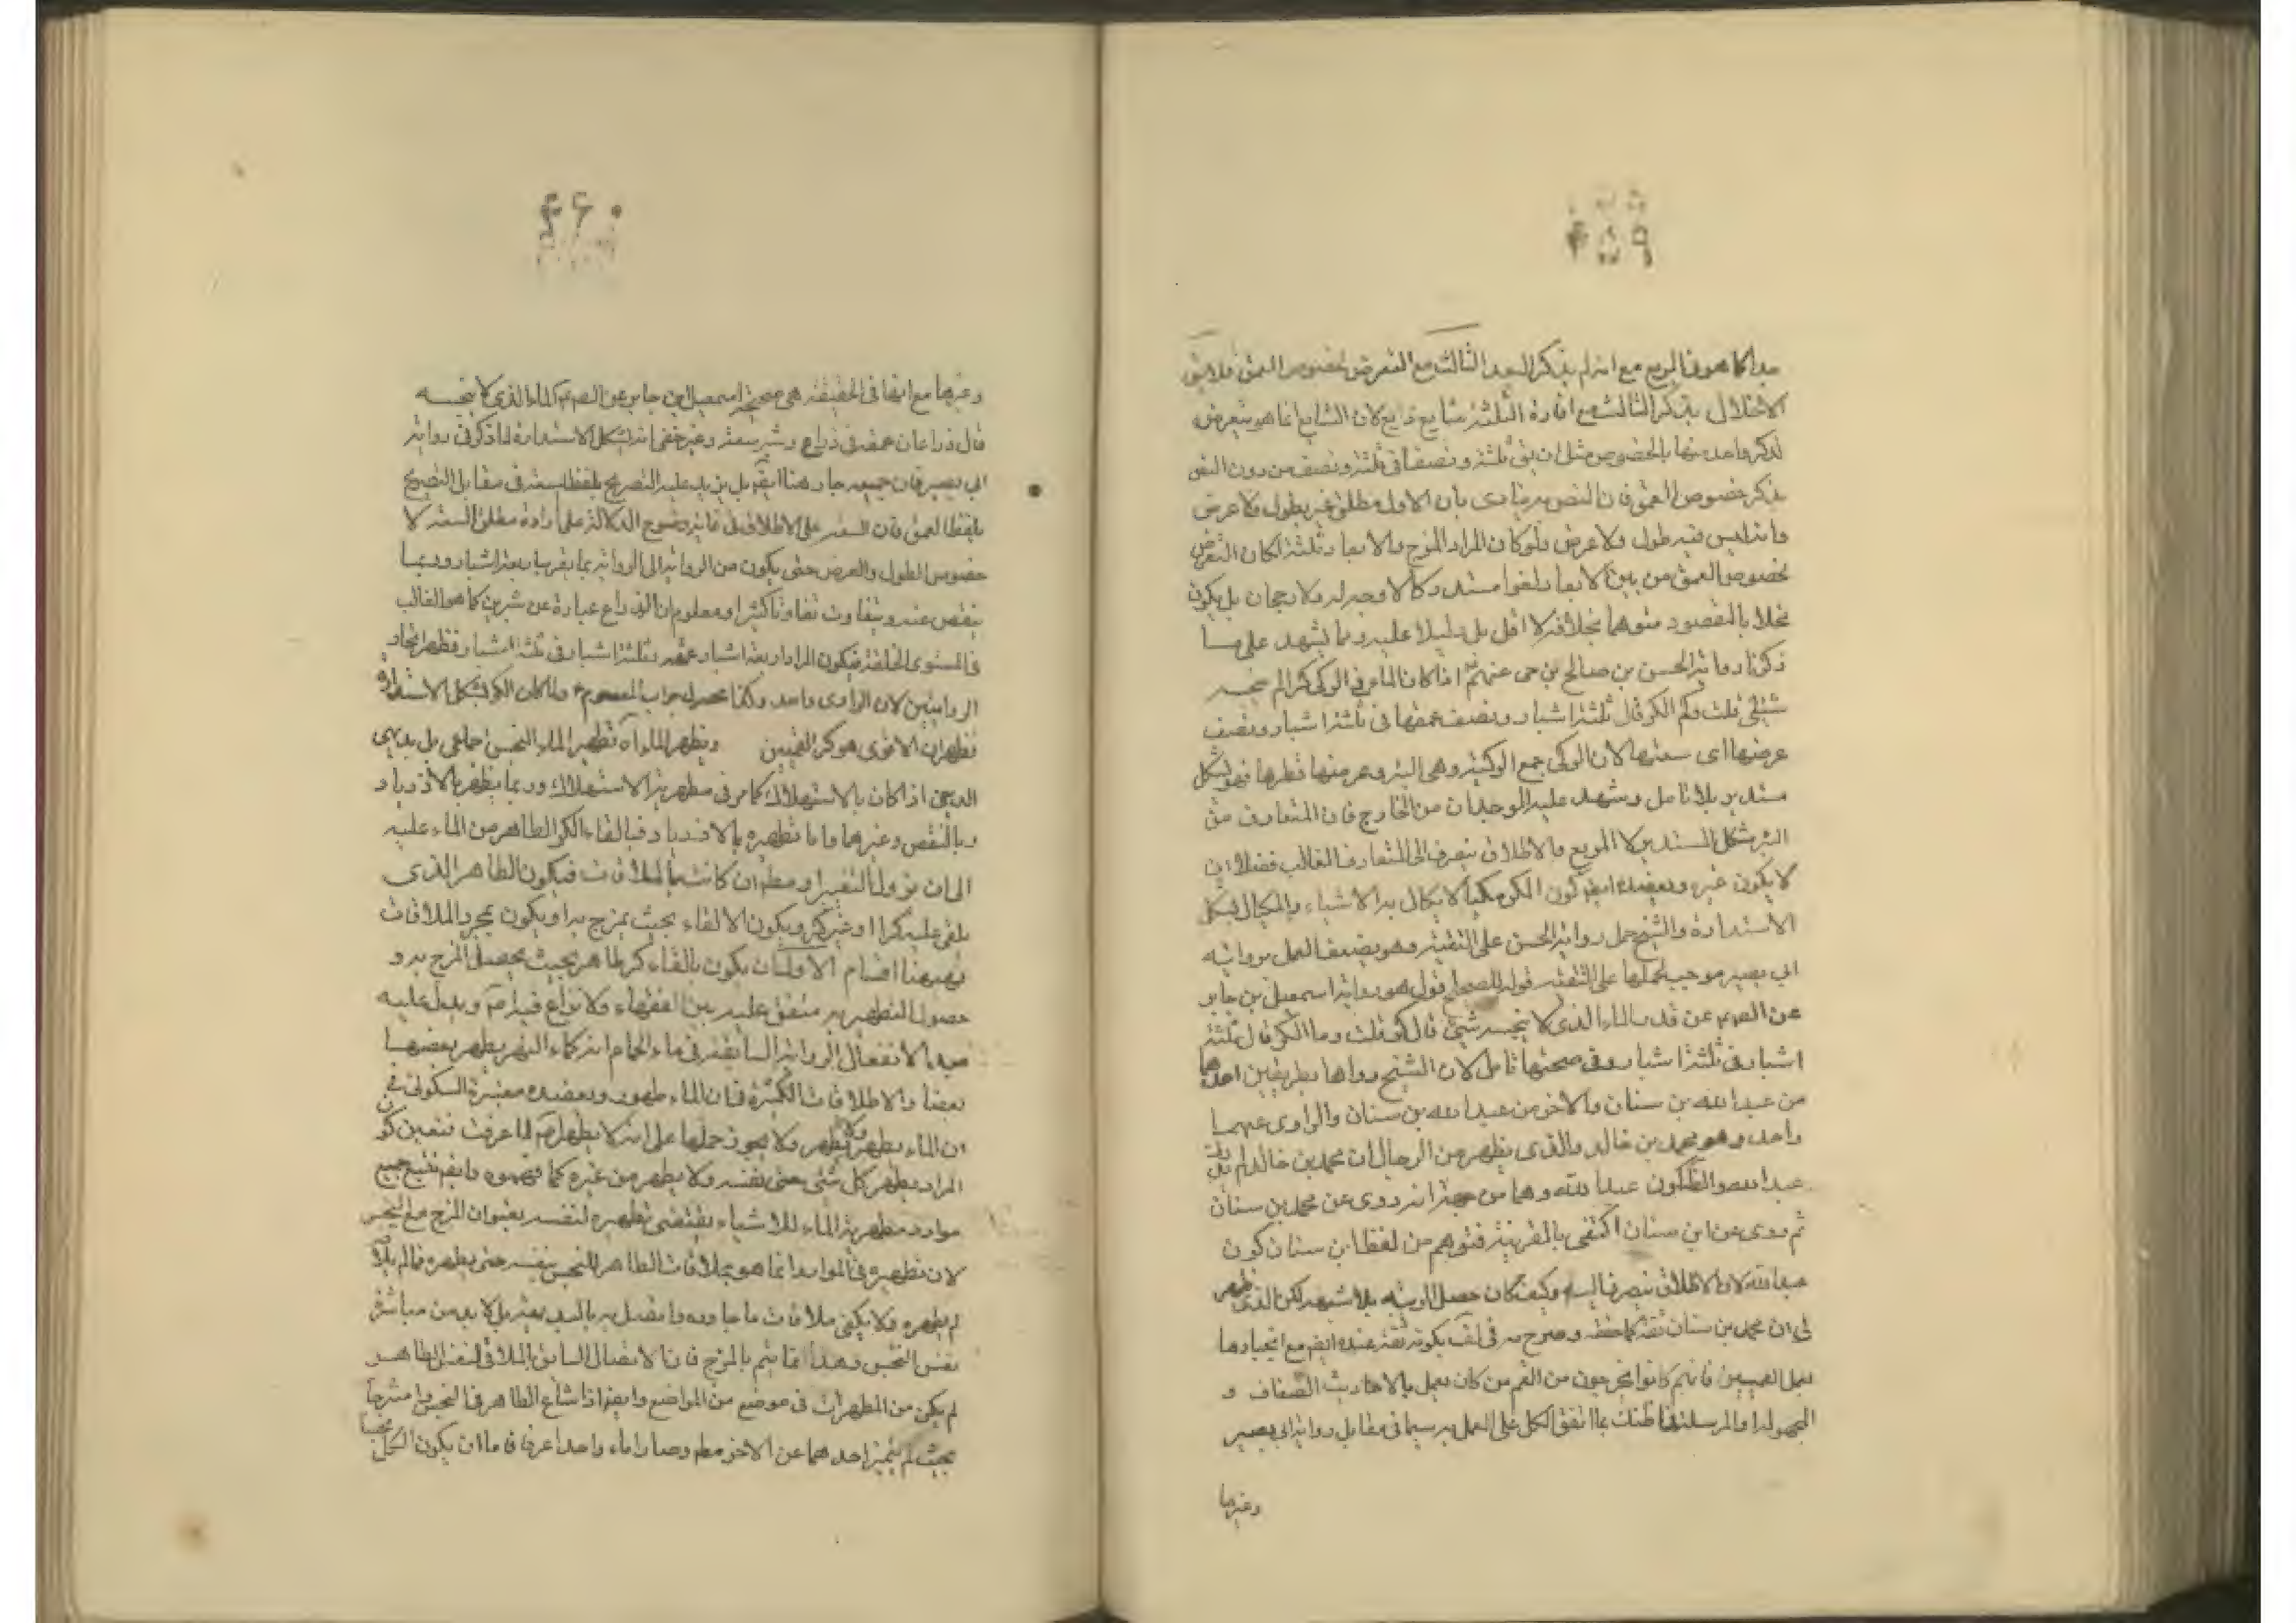 ۴۵۹
جدا كما هو في المربع مع انه لم يذكر البعد الثالث مع التعرض لخصوص العمق فلا يبق
الاختلال بترك الثالث مع افادة الثلثة شايع ذايع لان الشايع انما هو بتعرض
لذكر واحد منها بالخصوص مثل ان يق ثلثة ونصفا في ثلثة ونصف من دون النص
بذكر خصوص العمق فان النص به ينادى بان الاول مطلق غير طول ولا عرض
وانه ليس فيه طول ولا عرض ولو كان المراد المزج والابعاد ثلثة لكان التعرض
لخصوص العمق من بين الابعاد لغوا مستدركا لا وجه له ولا رجحان بل يكون
مخلا بالمقصود متوهما بخلافه لا اقل بل دليلا عليه ومما يشهد على ما
ذكرنا رواية الحسن بن صالح بن حى عنهم اذا كان الماء في الركى كرا لم ينجسه
شئ قلت وكم الكر قال ثلثة اشبار ونصف عمقها في ثلثة اشبار ونصف
عرضها اى سعتها لان الركى جمع الركية وهى البئر وعرضها قطرها فهو بشكل
مستدير بلا تامل ويشهد عليه الوجدان من الخارج فان المتعارف من
البئر شكل المستدير لا المربع والاطلاق ينصرف الى المتعارف الغالب فضلا ان
لا يكون غيره ويعضده ايضا كون الكر مكيالا يكال به الاشياء والمكيال بشكل
الاستدارة والشيخ حمل رواية الحسن على التقية وهو يضعف العمل برواية
ابي بصير موجب لحملها على التقية قوله للصحاح قول هو رواية اسمعيل بن جابر
عن الصم عن قدر الماء الذى لا ينجسه شئ قال كر قلت وما الكر قال ثلثة
اشبار في ثلثة اشبار وفي صحتها تامل لان الشيخ رواها بطريقين احدهما
من عبد الله بن سنان والاخر من عبد الله بن سنان والراوى عنهما
واحد وهو محمد بن خالد والذى يظهر من الرجال ان محمد بن خالد لم يلق
عبد الله والظ كون عبد الله وهما من جهة انه روى عن محمد بن سنان
ثم روى عن ابن سنان اكتفى بالقرينة فتوهم من لفظ ابن سنان كون
عبد الله لان الاطلاق ينصرف اليه وكيف كان حصل الريبة بلا شبهة لكن الذى ظهر
لى ان محمد بن سنان ثقة كما حققه وصرح به في لف بكونه ثقة عنده ايض مع انجبارها
بعمل القميين فانهم كانوا يخرجون من القم من كان يعمل بالاحاديث الضعاف و
المجهولة والمرسلة فما ظنك بما اتفق الكل على العمل به سيما في مقابل رواية ابى بصير
وغيرها
۴۶۰
وغيرها مع انها في الحقيقة هى صحيحة اسمعيل ابن جابر عن الصم عم الماء الذى لا ينجسه
قال ذراعان عمقه في ذراع وشبر سعته وغير خفى انه بشكل الاستدارة لما ذكر في رواية
ابي بصير فان جميعه جار هنا ايضا بل يزيد عليه التصريح بلفظ سعته في مقابل التصريح
بلفظ العمق فان السعة على الاطلاق في غاية وضوح الدلالة على ارادة مطلق السعة لا
خصوص الطول والعرض حتى يكون من الرواية الى الرواية بما يقرب اربعة اشبار وربما
ينقص عنه ويتفاوت تفاوتا كثيرا ومعلوم ان الذراع عبارة عن شبرين كما هو الغالب
في المستوى الخلقة فيكون المراد اربعة اشبار عمقه وثلثة اشبار في ثلثة اشبار فظهر اتحاد
الروايتين لان الراوى واحد وكذا محصل جواب المعصوم ع ولما كان الكر بشكل الاستدارة
فظهر ان الاقوى هو كر القميين ويطهر الماء آه تطهير الماء النجس اجماعى بل بديهى
الدين اذا كان بالاستهلاك كما مر في مطهرية الاستهلاك وربما يطهر بالازدياد
وبالنقص وغيرهما واما تطهره بالازدياد فبالقاء الكر الطاهر من الماء عليه
الى ان يزول التغير او مطم ان كانت بالملاقات فيكون الطاهر الذى
يلقى عليه كرا او غير كر ويكون الالقاء بحيث يمزج به او يكون بمجرد الملاقات
فههنا اقسام الاول ان يكون بالقاء كر طاهر بحيث يحصل المزج به و
حصول التطهير به متفق عليه بين الفقهاء ولا نزاع فيه لهم ويدل عليه
بعد الانفعال الرواية السابقة في ماء الحمام انه كماء النهر يطهر بعضها
بعضا والاطلاقات الكثيرة فان الماء طهور ويعضده معتبرة السكونى في
ان الماء يطهر ولا يطهر ولا يجوز حملها على انه لا يطهر لما عرفت فتعين كون
المراد يطهر كل شئ حتى نفسه ولا يطهر من غيره كما فهموه وايضم تتبع جميع
موارد مطهرية الماء للاشياء يقتضى تطهيره لنفسه بعنوان المزج مع النجس
لان تطهيره في الموارد انما هو بملاقات الطاهر للنجس بنفسه حتى يطهره فما لم يلاق
لم يطهره ولا يكفى ملاقات ما جاوره وما اتصل به بالبديهة بل لا بد من مباشرة
نفس النجس وهذا انما يتم بالمزج فان الاتصال السابق بالملاقى لنفس الطاهر
لم يكن من المطهرات في موضع من المواضع وايضا اذا شاع الطاهر في النجس وامتزجا
بحيث لم يتميز احدهما عن الاخر مطم وصارا ماء واحدا عرفا فاما ان يكون الكل نجسا